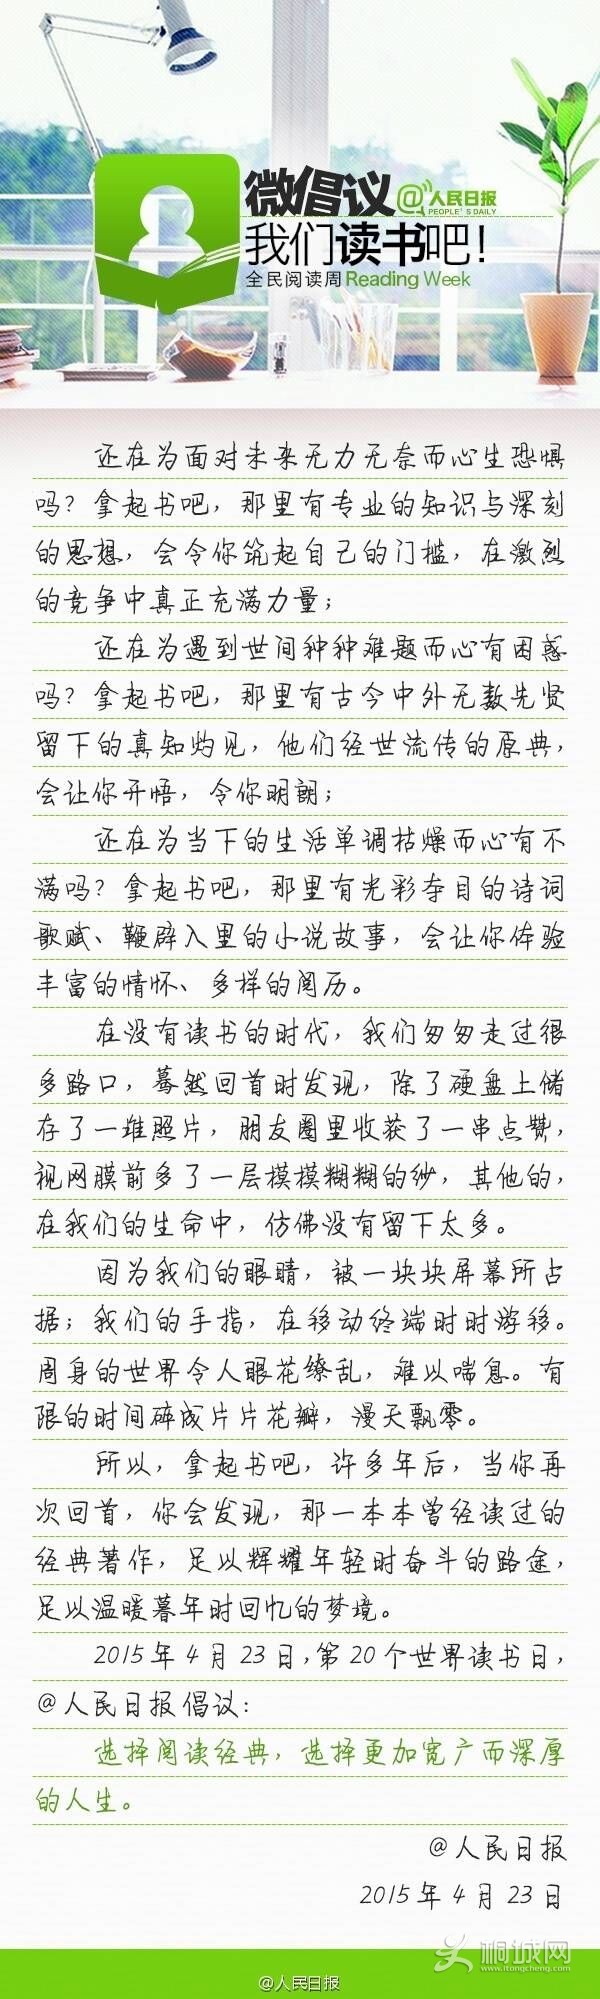 微倡议@人民日报
PEOPLE'S DAILY
我们读书吧!
全民阅读周Reading Week
还在为面对未来无力无奈而心生恐惧
吗？拿起书吧，那里有专业的知识与深刻
的思想，会令你筑起自己的门槛，在激烈
的竞争中真正充满力量；
还在为遇到世间种种难题而心有困惑
吗？拿起书吧，那里有古今中外无数先贤
留下的真知灼见，他们经世流传的原典，
会让你开悟，令你明朗；
还在为当下的生活单调枯燥而心有不
满吗？拿起书吧，那里有光彩夺目的诗词
歌赋、鞭辟入里的小说故事，会让你体验
丰富的情怀、多样的阅历。
在没有读书的时代，我们匆匆走过很
多路口，蓦然回首时发现，除了硬盘上储
存了一堆照片，朋友圈里收获了一串点赞，
视网膜前多了一层模模糊糊的纱，其他的，
在我们的生命中，仿佛没有留下太多。
因为我们的眼睛，被一块块屏幕所占
据；我们的手指，在移动终端时时游移。
周身的世界令人眼花缭乱，难以喘息。有
限的时间碎成片片花瓣，漫天飘零。
所以，拿起书吧，许多年后，当你再
次回首，你会发现，那一本本曾经读过的
经典著作，足以辉耀年轻时奋斗的路途，
足以温暖暮年时回忆的梦境。
2015年4月23日，第20个世界读书日，
@人民日报 倡议：
选择阅读经典，选择更加宽广而深厚
的人生。
@人民日报
2015年4月23日
桐城网
www.itongcheng.com
@人民日报